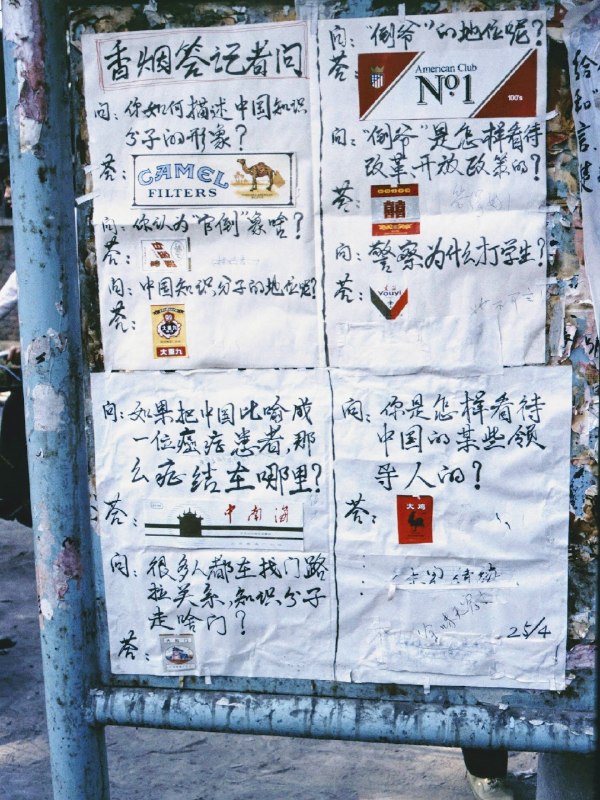 香烟答记者问
问：你如何描述中国知识
分子的形象？
答：
CAMEL
FILTERS
问：你认为"官倒"象啥？
答：
问：中国知识分子的地位呢？
答：
大重九
问："倒爷"的地位呢？
答：
American Club
No1
100's
问："倒爷"是怎样看待
改革、开放政策的？
答：
囍
问：警察为什么打学生？
答：
YOUYI
问：如果把中国比喻成
一位癌症患者，那
么症结在哪里？
答：
中南海
问：很多人都在找门路
拉关系，知识分子
走啥门？
答：
问：你是怎样看待
中国的某些领
导人的？
答：
大鸡
25/4